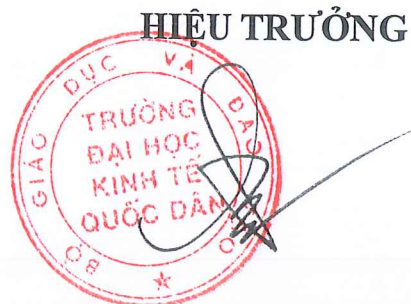 HIỆU TRƯỞNG
BỘ GIÁO DỤC VÀ ĐÀO
TRƯỜNG
ĐẠI HỌC
KINH TẾ
QUỐC DÂN